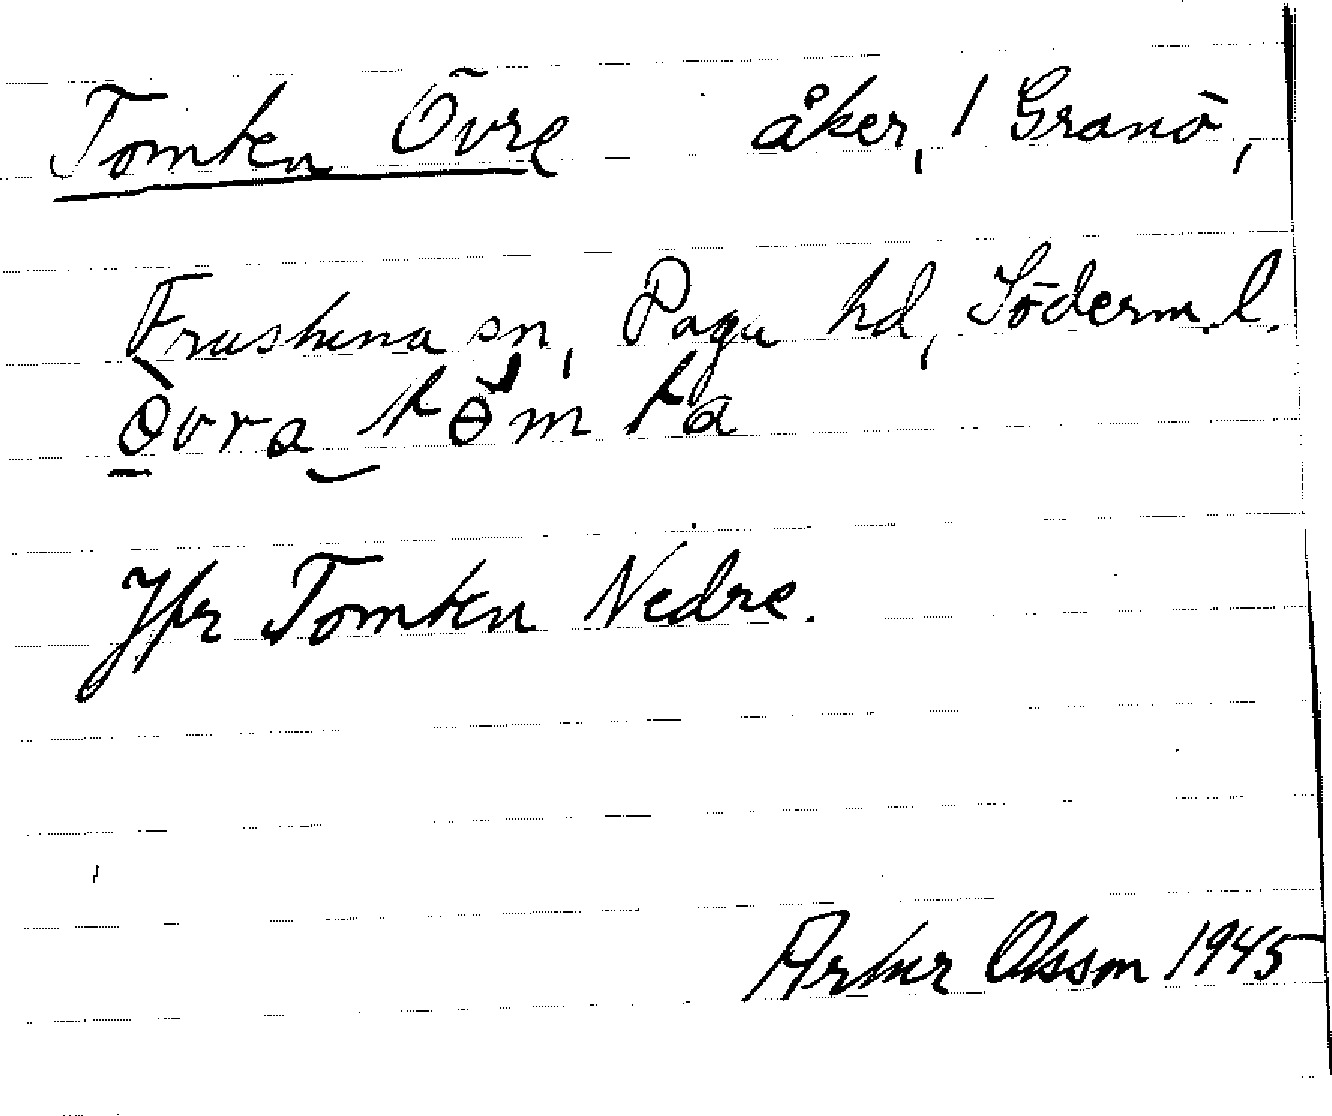 Tomten Övre åker, 1 Granö,
Frustuna sn, Daga hd, Söderm. l.
ɵvra tɵmta
Jfr Tomten Nedre.
Artur Olsson 1945